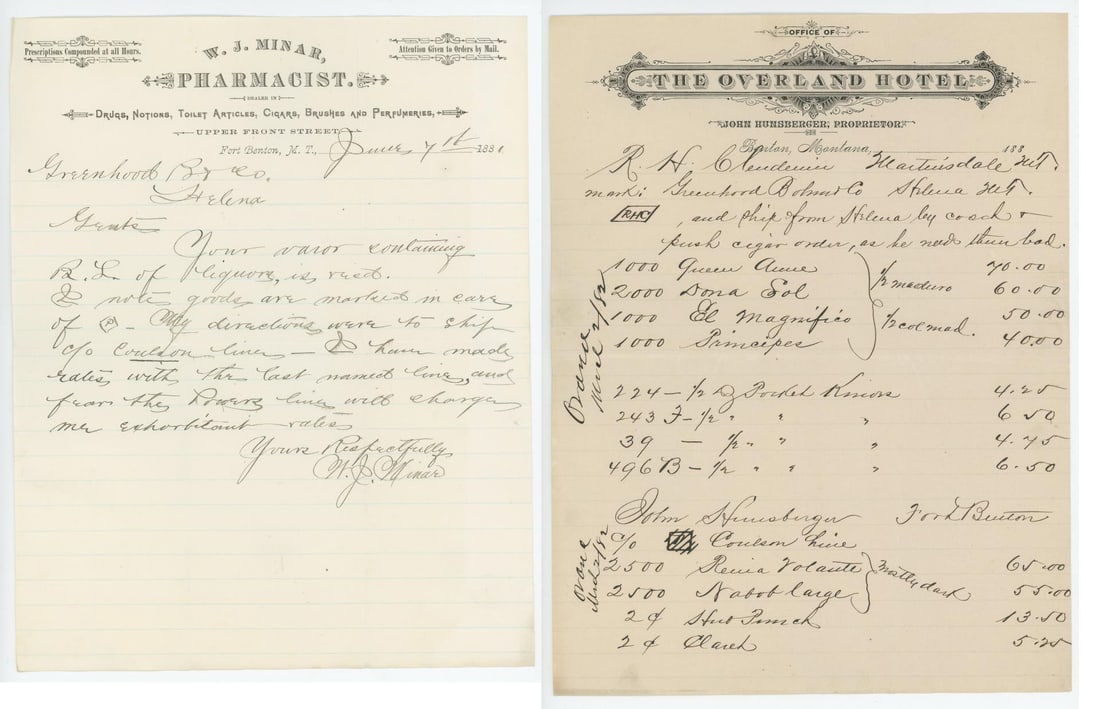 Prescriptions Compounded at all Hours.
W. J. MINAR,
Attention Given to Orders by Mail.
PHARMACIST.
DEALER IN
DRUGS, NOTIONS, TOILET ARTICLES, CIGARS, BRUSHES AND PERFUMERIES,
UPPER FRONT STREET,
Fort Benton, M. T., June 7th 1881
Greenhood B & Co.
Helena
Gents
Your favor containing
B. L. of liquors, is recd.
I note goods are marked in care
of P - My directions were to ship
c/o Coulson line - I have made
rates with the last named line, and
fears the Powers line will charge
me exhorbitant rates
Yours Respectfully
W. J. Minar
OFFICE OF
THE OVERLAND HOTEL
JOHN HUNSBERGER, PROPRIETOR.
Benton, Montana, 188
R. H. Clendenin Martinsdale MT.
mark: Greenhood Bohm & Co Helena MT.
RHC , and ship from Helena by coach &
push cigar order, as he needs them bad.
1000 Queen Anne 70.00
2,000 Dona Sol 1/2 maduro 60.00
1000 El Magnifico 1/2 col mad. 50.00
1000 Principes 40.00
224 - 1/2 D Pocket Knives 4.25
243 F - 1/2 " " " 6.50
39 - 1/2 " " " 4.75
496 B - 1/2 " " " 6.50
John Hunsberger Fort Benton
c/o Coulson Line
2500 Reina Volante 65.00
2500 Nabob large mostly dark 55.00
2 ¢ Punch 13.50
2 ¢ Claret 5.25